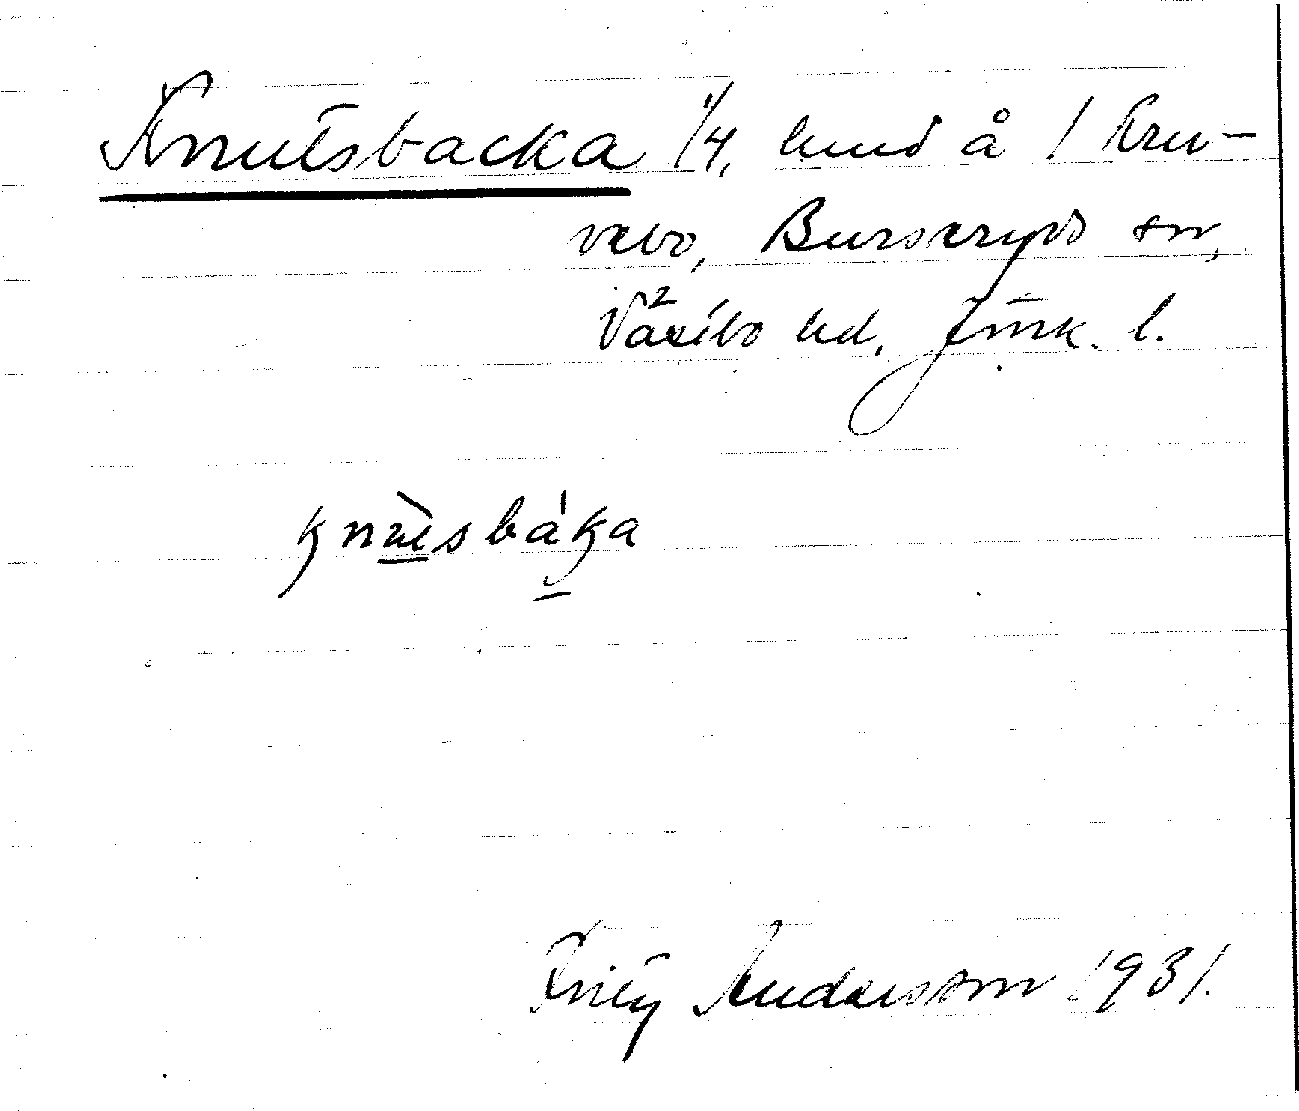 Knutsbacka 1/4, hmd å 1 Kru-
vebo, Burseryds sn,
Västbo hd. Jmk. l.
knu̲tsbáka
Fritz Andersson 1931.